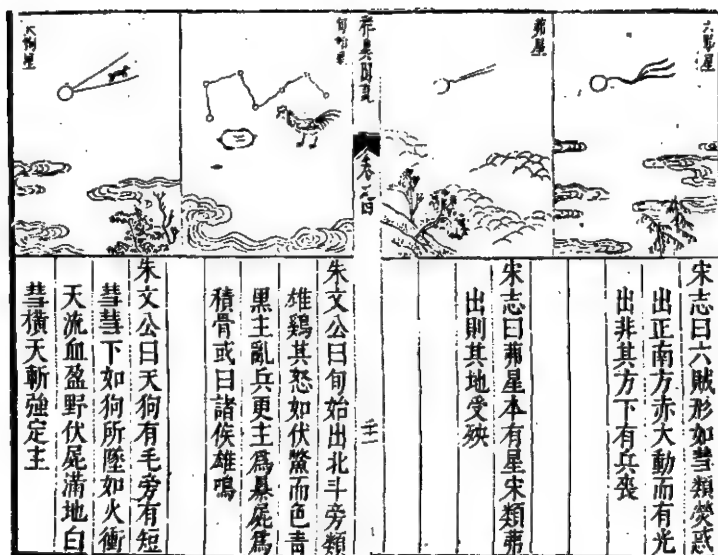 六賊星
宋志曰六賊形如彗類熒惑
出正南方赤大動而有光
出非其方下有兵喪
茀星
宋志曰茀星本有星宋類茀
出則其地受殃
祥異圖
卷之四
旬始星
朱文公曰旬始出北斗旁類
雄鷄其怒如伏鱉而色青
黑主亂兵更主爲暴屍爲
積骨或曰諸侯雄鳴
天狗星
朱文公曰天狗有毛旁有短
彗彗下如狗所墜如火衝
天流血盈野伏屍滿地曰
彗橫天斬強定主